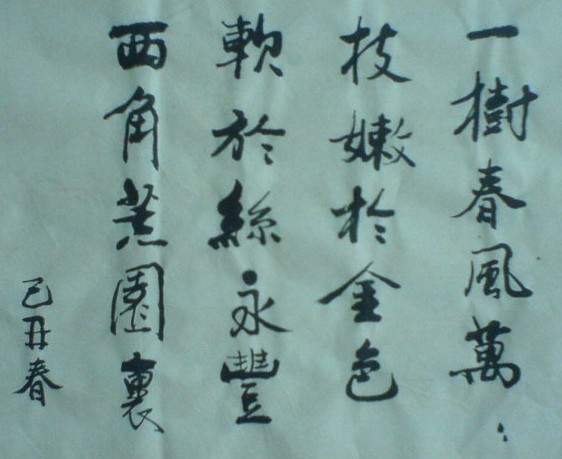 一樹春風萬〻
枝嫩於金色
軟於絲永豐
西角荒園裏
己丑春